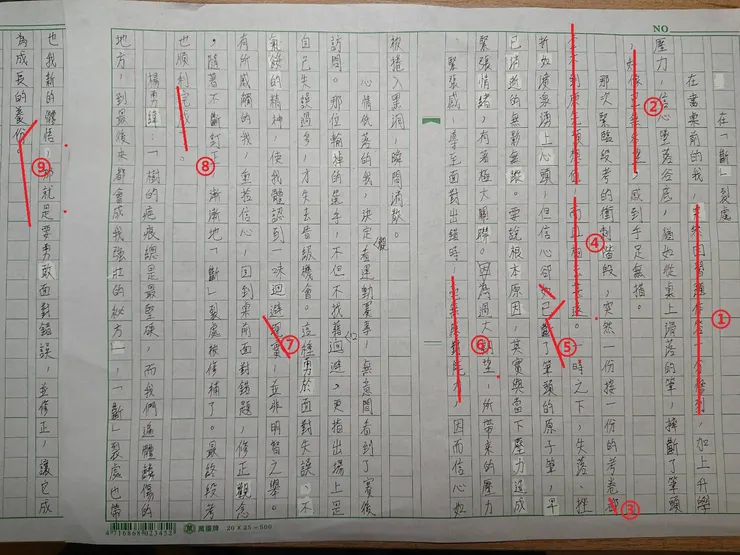 NO.
在「斷」裂處
在書桌前的我,突然因習題
,加上升學
壓力,信心墜落谷底,猶如從桌上滑落的筆,摔斷了筆頭
,好像
,感到手足無措。
那次緊臨段考的衝刺階段,突然一份接一份的考卷
不到原先預想值,而且
。一時之下,失落、挫
折如湧泉湧上心頭,但信心卻如已斷了筆頭的原子筆,早
已消逝的無影無蹤。要說根本原因,其實與當下壓力造成
緊張情緒,有著極大關聯。因為過大期望,所帶來的壓力
、緊張感,導至面對出錯時,
,因而信心如
被捲入黑洞,瞬間消散。
心情低落的我,決定觀看運動賽事,無意間看到了賽後
訪問。那位輸掉的選手,不但不找藉口迴避,更指出場上是
自己失誤過多,才失去晉級機會。這種勇於面對失誤、不
氣餒的精神,使我體認到一味迴避現實,並非明智之舉。
有所感觸的我,重拾信心,回到桌前面對錯題,修正觀念
,隨著不斷訂正,漸漸地「斷」裂處被修補了。最終段考
也順利完成。
楊勇緯:「樹的疤痕總是最堅硬,而我們遍體鱗傷的
地方,到最後來都會成我強壯的地方」,「斷」裂處也帶
也我新的體悟,那就是要勇敢面對錯誤,並修正,讓它成
為成長的養份。
①
②
③
④
⑤
⑥
⑦
⑧
⑨
萬國牌 20×25=500
4 716868 023452